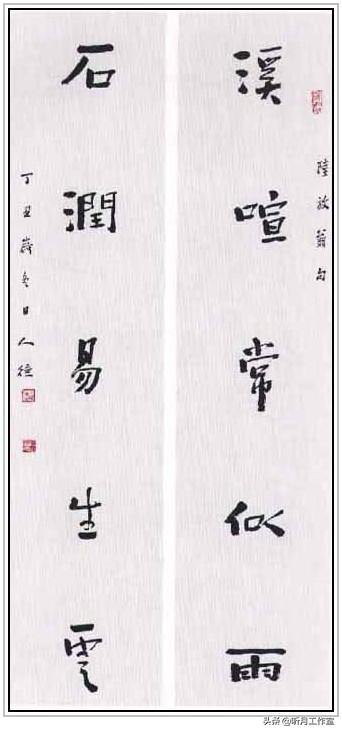 陸放翁句
溪喧常似雨
石潤易生雲
丁丑歲冬日人德
头条@听月工作室